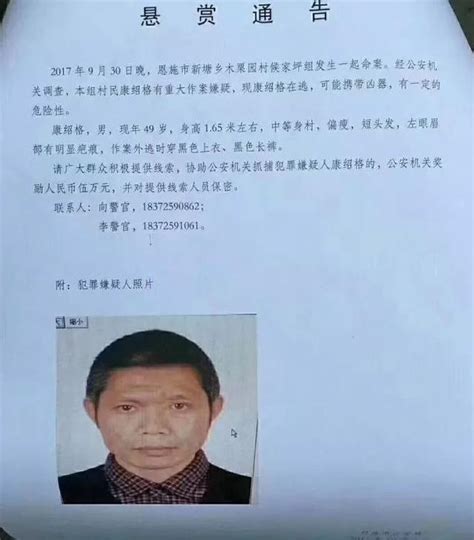 悬赏通告
2017年9月30日晚，恩施市新塘乡木栗园村侯家坪组发生一起命案。经公安机
关调查，本组村民康绍格有重大作案嫌疑，现康绍格在逃，可能携带凶器，有一定的
危险性。
康绍格，男，现年49岁，身高1.65米左右，中等身村，偏瘦，短头发，左眼眉
部有明显疤痕，作案外逃时穿黑色上衣、黑色长裤。
请广大群众积极提供线索，协助公安机关抓捕犯罪嫌疑人康绍格的，公安机关奖
励人民币伍万元，并对提供线索人员保密。
联系人：向警官，18372590862；
李警官，18372591061。
附：犯罪嫌疑人照片
缩小